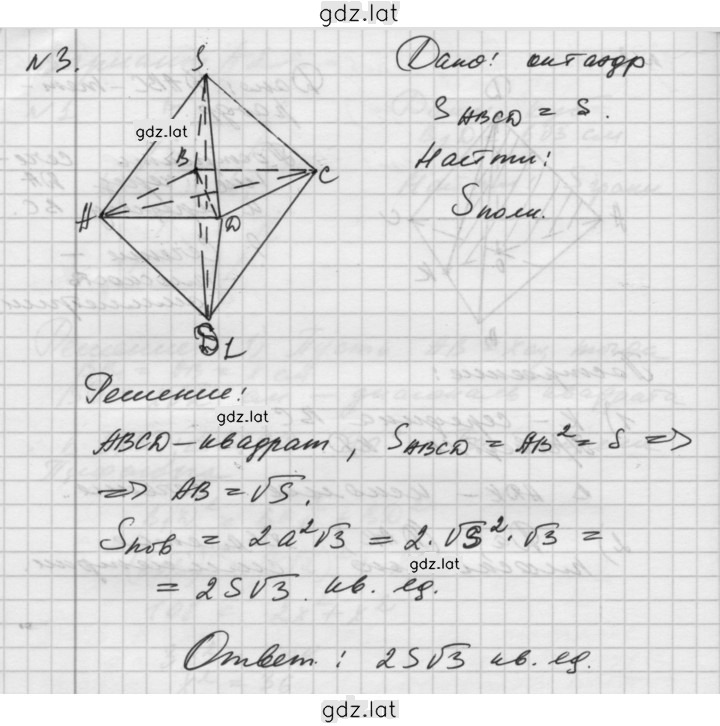 gdz.lat
№3. Дано: октаэдр
S
gdz.lat
S ABCD = S.
Найти:
Sполн.
B
C
A
D
S1
Решение:
gdz.lat
ABCD – квадрат, S ABCD = AB² = S =>
=> AB = √S.
Sпов = 2a²√3 = 2·√S²·√3 =
gdz.lat
= 2S√3 кв. ед.
Ответ: 2S√3 кв. ед.
gdz.lat